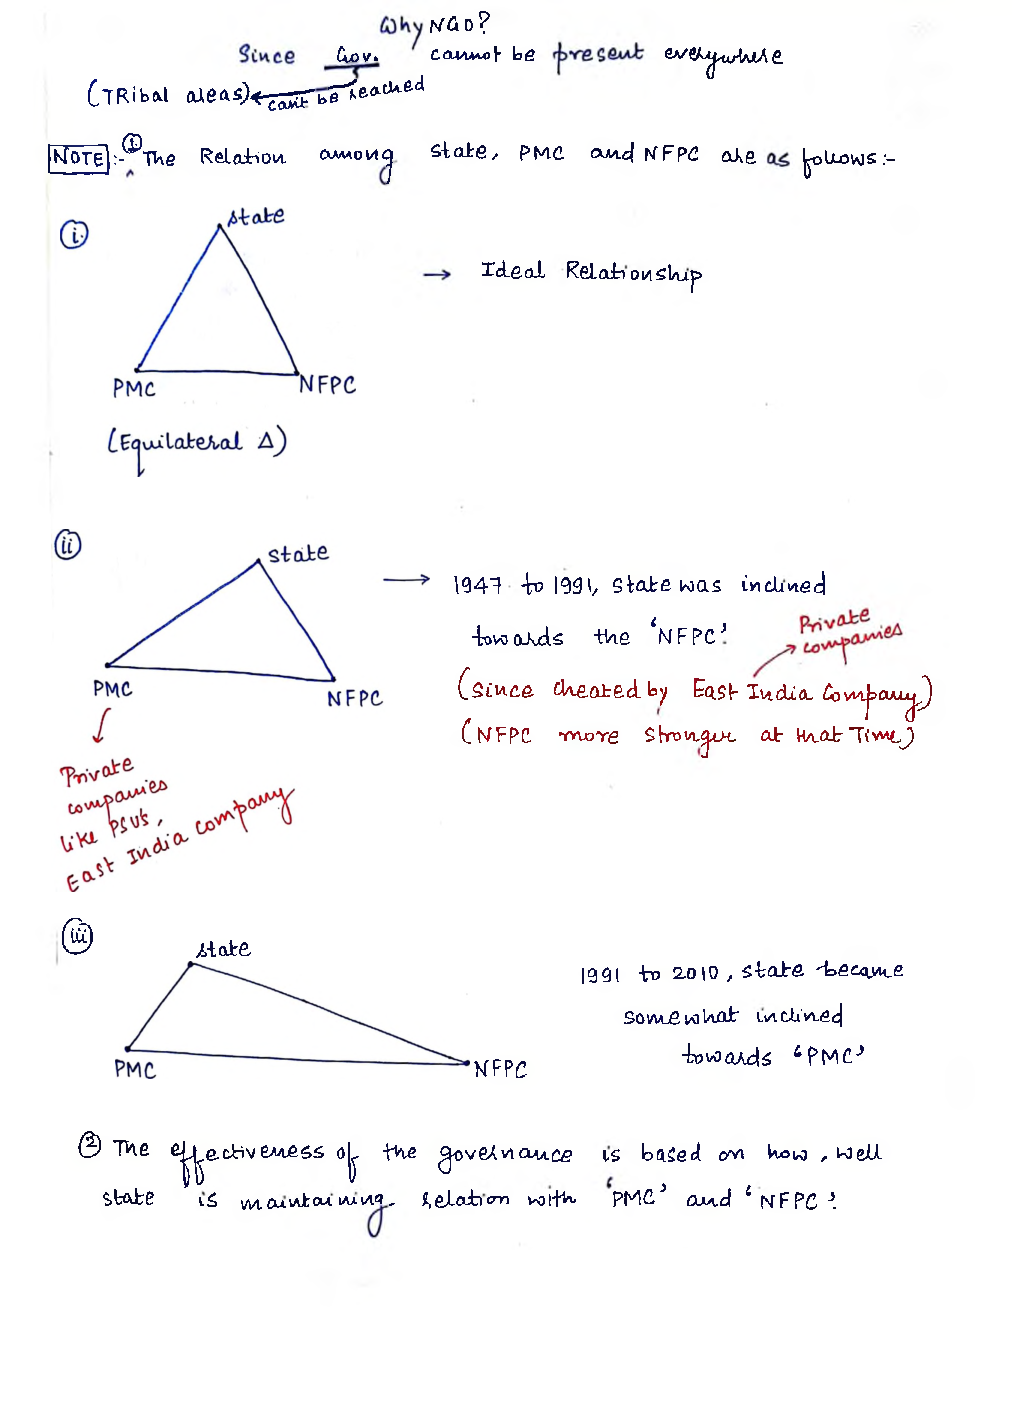 Why NGO?
Since Gov. cannot be present everywhere
(TRibal areas) can't be reached
NOTE :- ①. The Relation among state, PMC and NFPC are as follows :-
(i) state
→ Ideal Relationship
PMC NFPC
(Equilateral Δ)
(ii) state
→ 1947 to 1991, state was inclined
towards the 'NFPC'.
Private
companies
(since cheated by East India Company)
(NFPC more stronger at that Time)
PMC NFPC
Private
companies
like PSU's,
East India company
(iii) state
1991 to 2010, state became
somewhat inclined
towards 'PMC'
PMC NFPC
② The effectiveness of the governance is based on how, well
state is maintaining relation with 'PMC' and 'NFPC'.